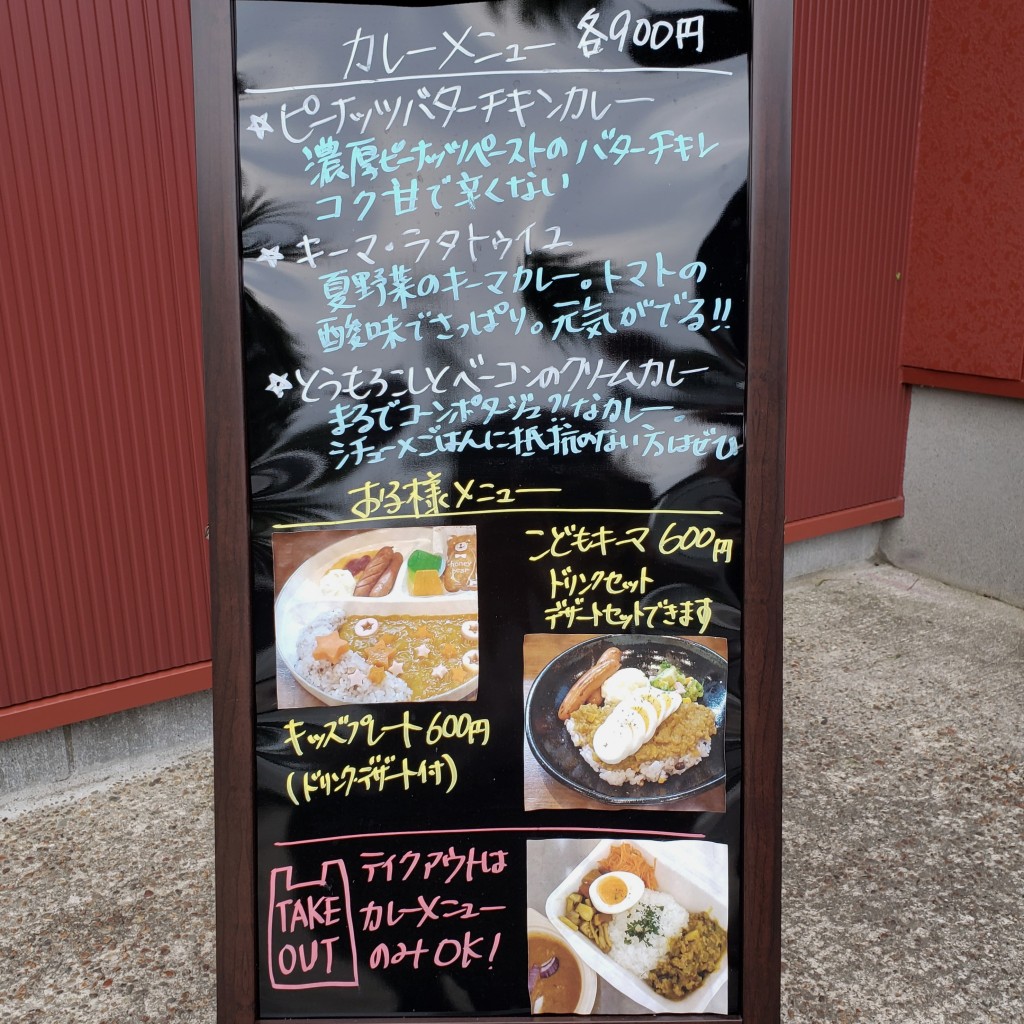 カレーメニュー 各900円
☆ピーナッツバターチキンカレー
濃厚ピーナッツペーストのバターチキン
コク甘で辛くない
☆キーマ・ラタトゥイユ
夏野菜のキーマカレー。トマトの
酸味でさっぱり。元気がでる!!
☆とうもろこしとベーコンのクリームカレー
まるでコーンポタージュ!!なカレー。
シチューメごはんに抵抗のない方はぜひ
お子様メニュー
こどもキーマ 600円
ドリンクセット
デザートセットできます
キッズプレート 600円
(ドリンク・デザート付)
TAKE
OUT
テイクアウトは
カレーメニュー
のみOK!